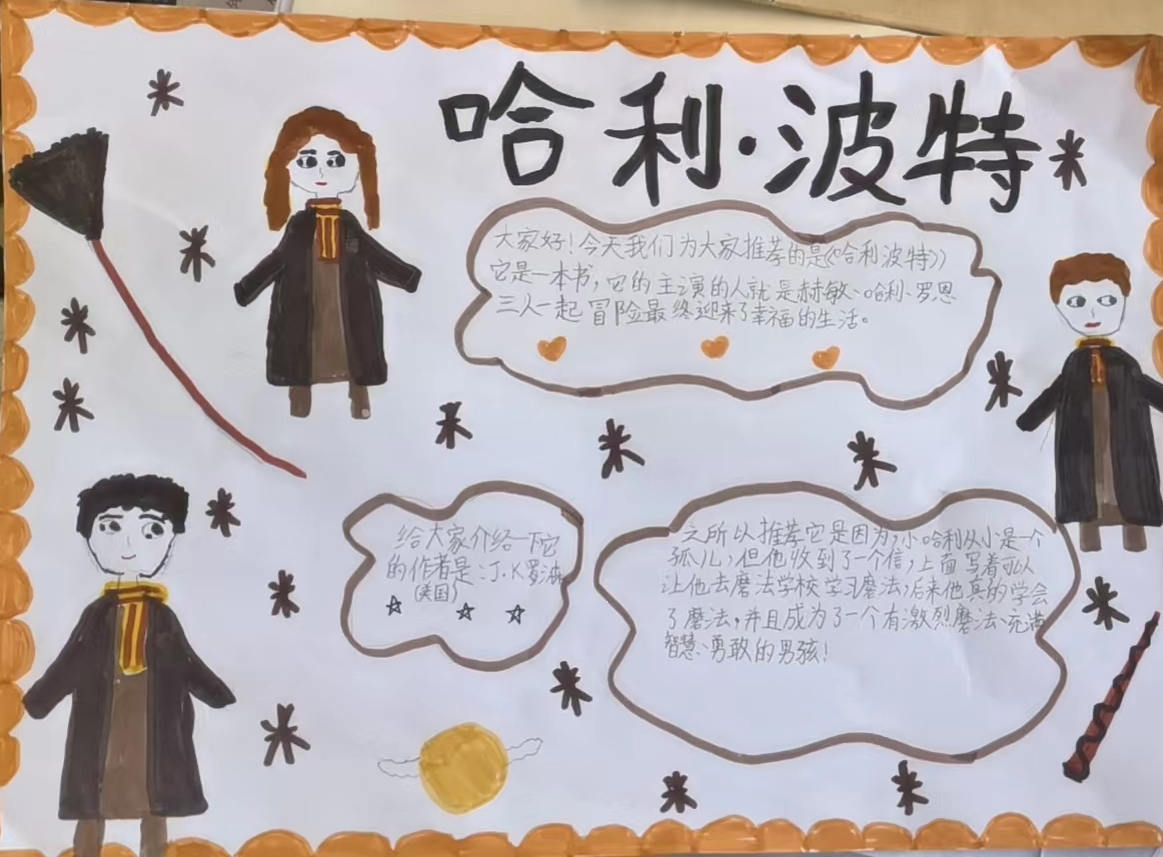 哈利·波特
大家好！今天我们为大家推荐的是《哈利波特》
它是一本书，它的主演的人就是赫敏、哈利、罗恩
三人一起冒险最终迎来了幸福的生活。
给大家介绍一下它
的作者是：J.K罗
(美国)
之所以推荐它是因为，小哈利从小是一个
孤儿，但他收到了一个信，上面写着可以
让他去磨法学校学习磨法，后来他真的学会
了磨法，并且成为了一个有激烈磨法、充满
智慧、勇敢的男孩！